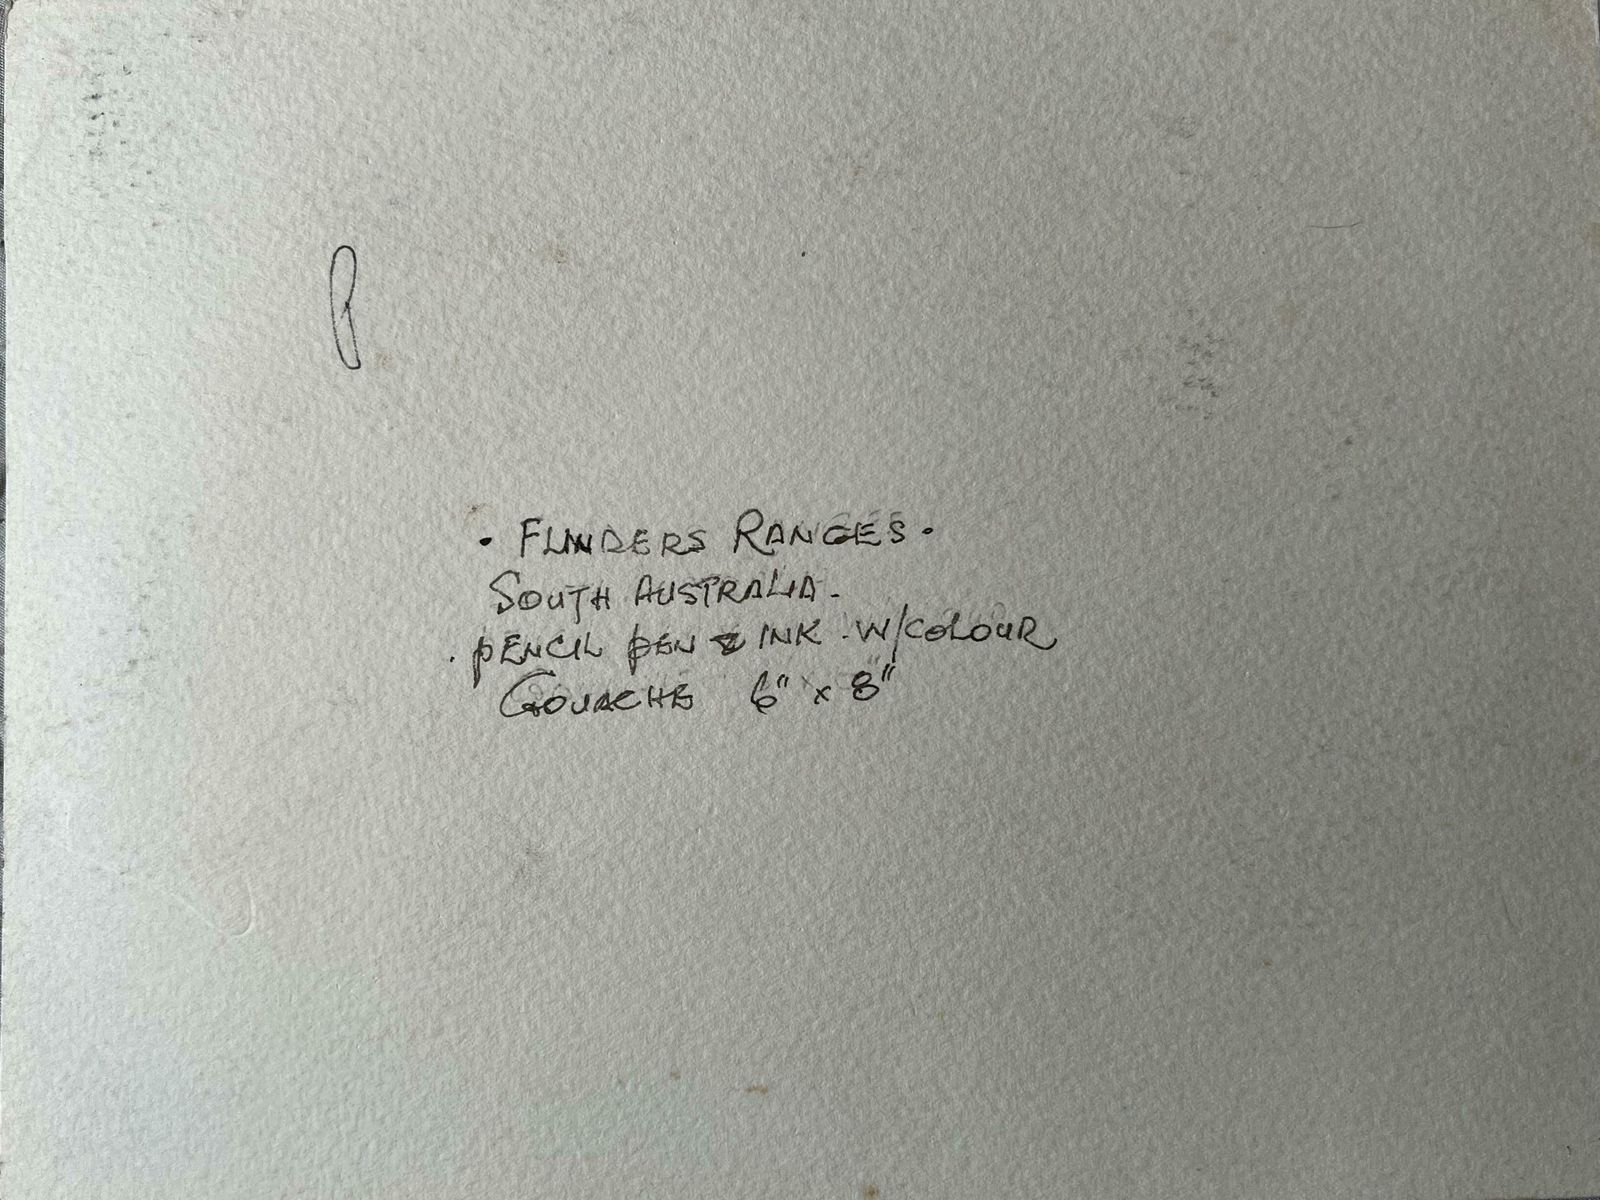 · FLINDERS RANGES ·
SOUTH AUSTRALIA.
. PENCIL PEN & INK . W/COLOUR
GOUACHE 6" x 8"